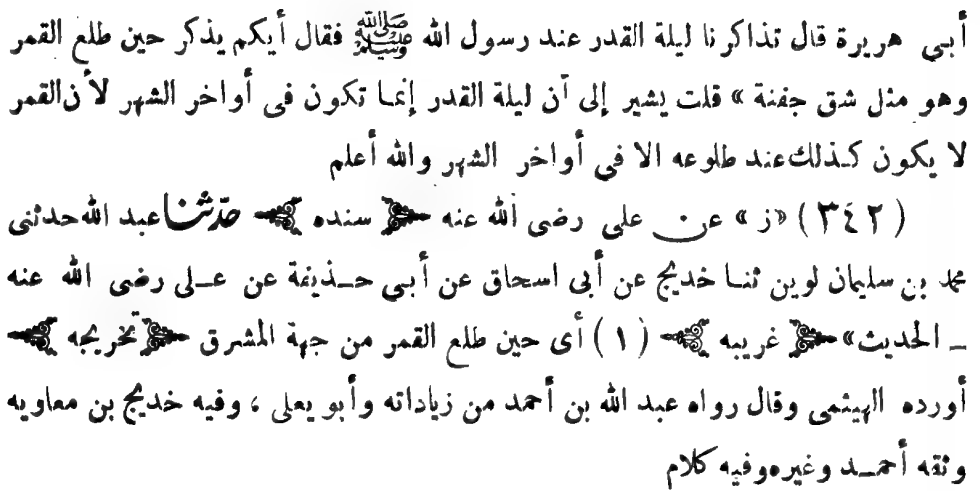 أبي هريرة قال تذاكرنا ليلة القدر عند رسول الله ﷺ فقال أيكم يذكر حين طلع القمر
وهو مثل شق جفنة » قلت يشير إلى أن ليلة القدر إنما تكون فى أواخر الشهر لأن القمر
لا يكون كذلك عند طلوعه الا في أواخر الشهر والله أعلم
(٣٤٢) «ز » عن على رضى الله عنه ﴿ سنده ﴾ حدّثنا عبد الله حدثنى
محمد بن سليمان لوين ثنا خديج عن أبى اسحاق عن أبي حذيفة عن على رضى الله عنه
ـ الحديث» ﴿ غريبه ﴾ (١) أى حين طلع القمر من جهة المشرق ﴿ تخريجه ﴾
أورده الهيثمى وقال رواه عبد الله بن أحمد من زياداته وأبو يعلى ، وفيه خديج بن معاويه
وثقه أحمد وغيره وفيه كلام